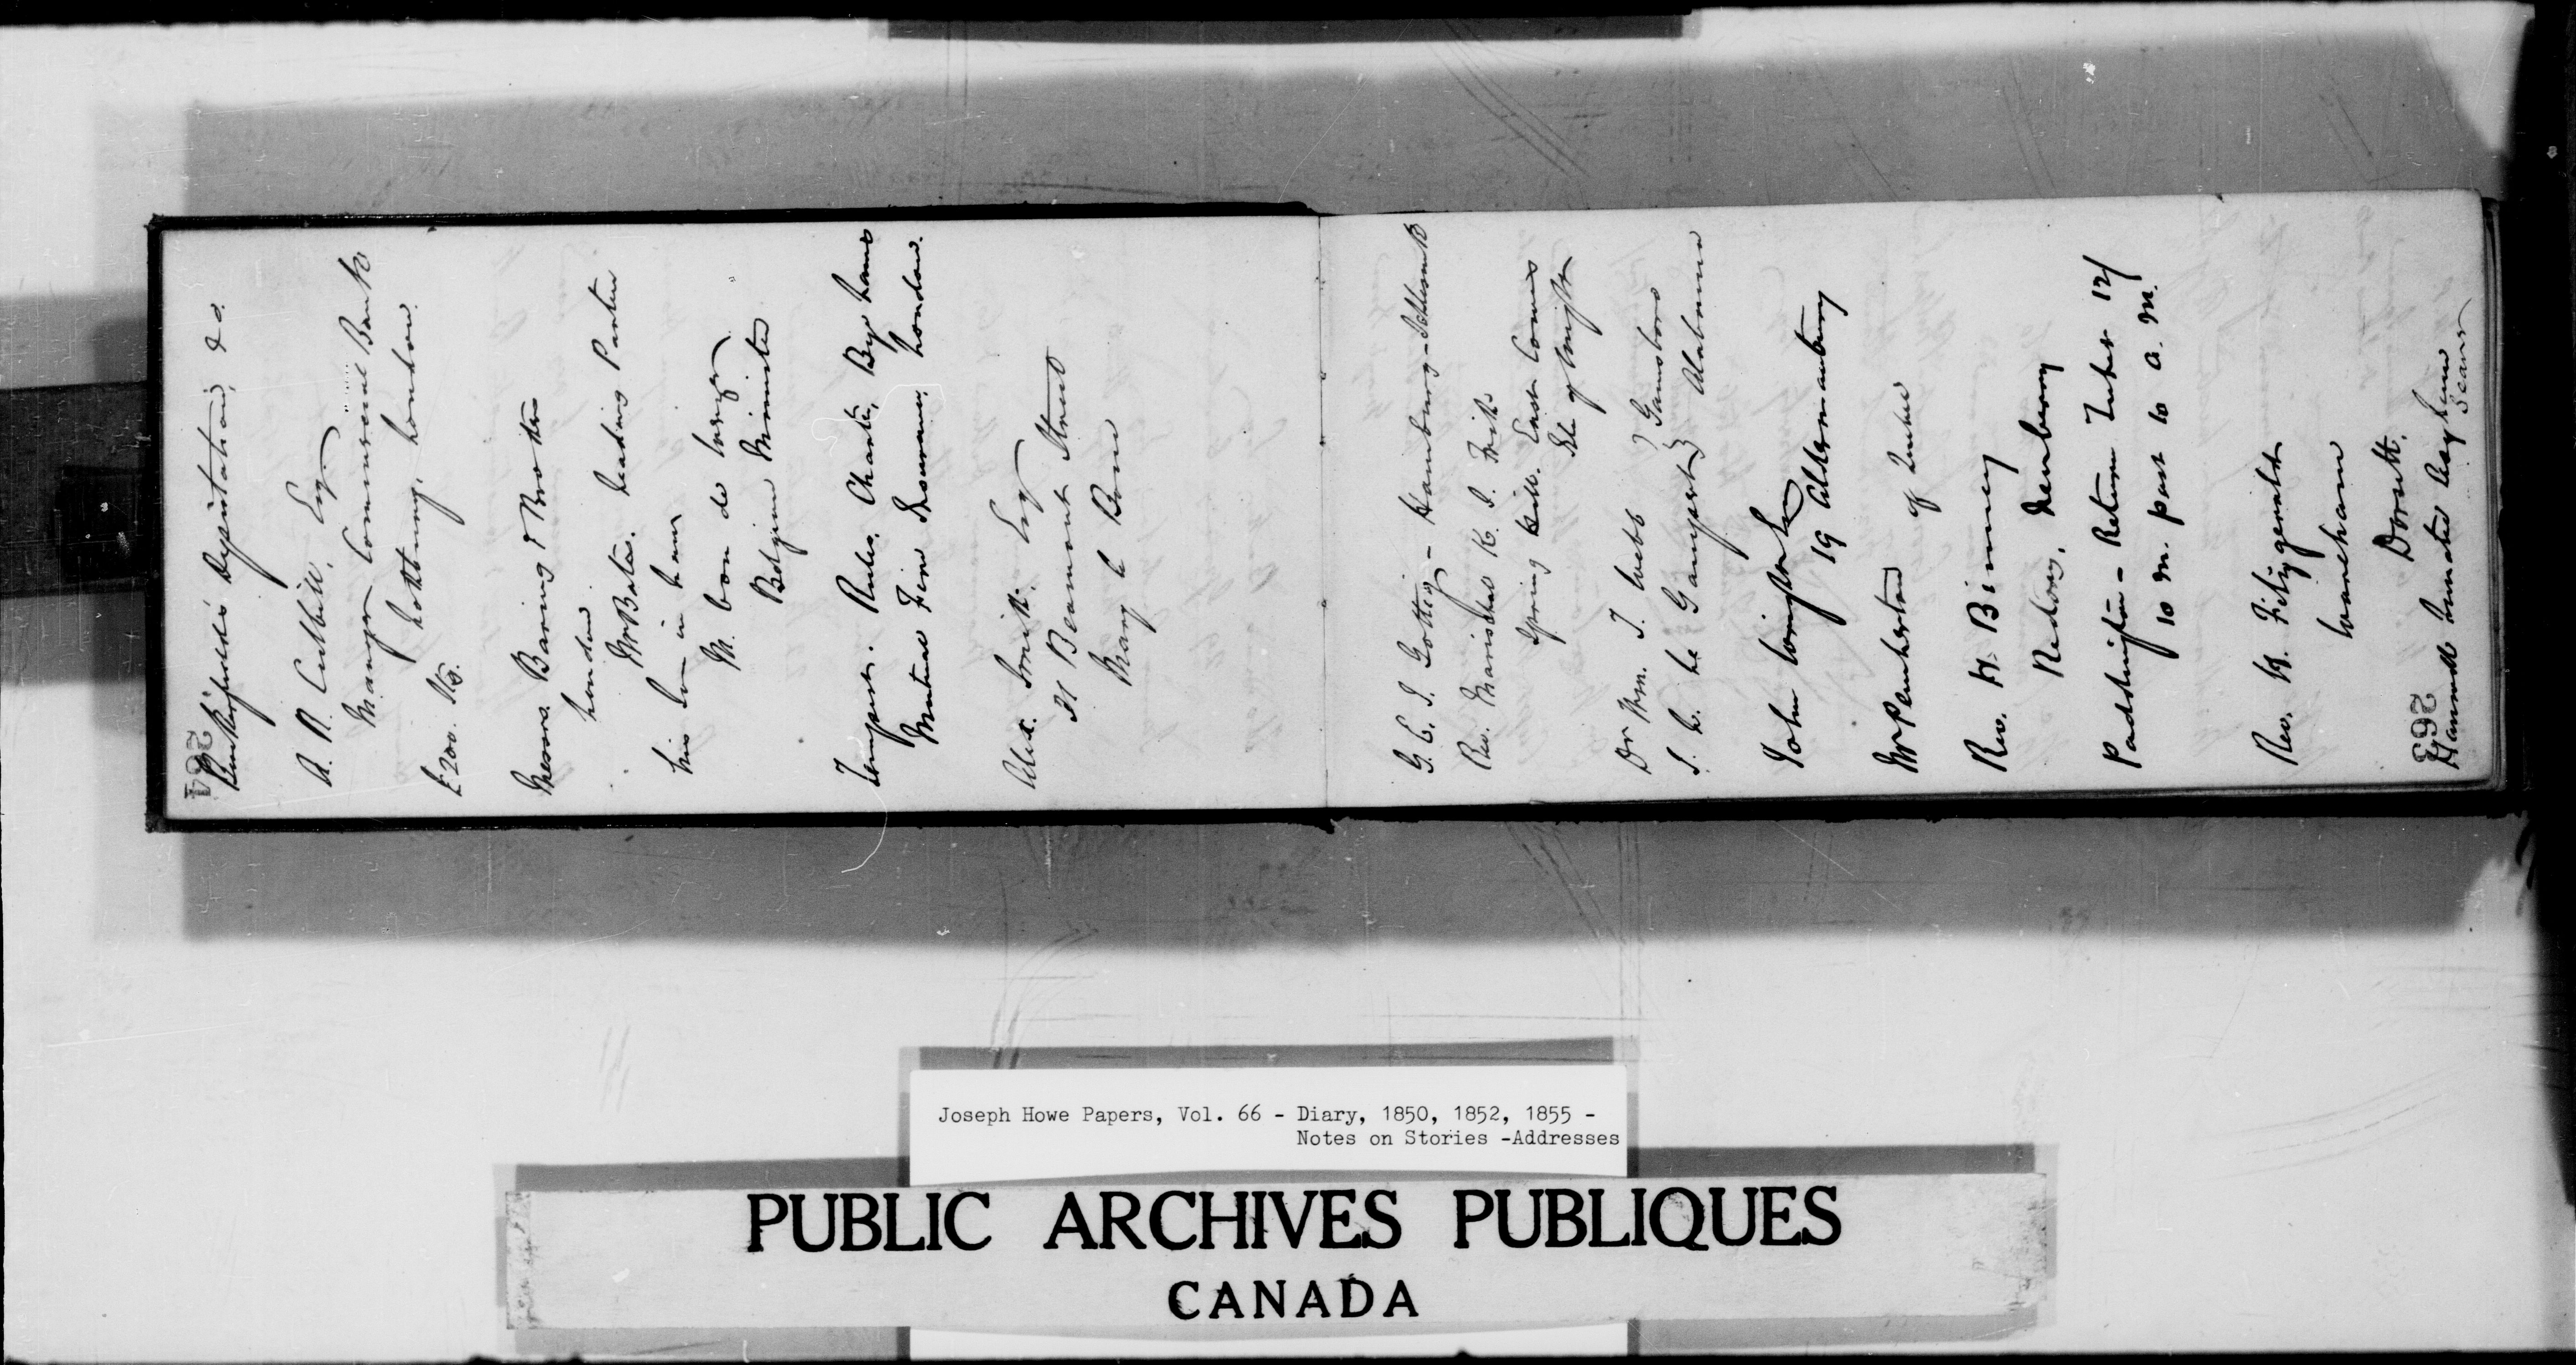 264
Deputation, &c.
A. R. Cuthbill, Esq
Manager Commercial Bank
Lothbury, London.
£200. Stg.
Messrs. Baring & Brothers
London
Mr Bates. Leading Partner
his Son in Law
M. Van de Weyer
Belgian Minister
Temper. Rules. Charter, Bye Laws
Mutual Fire Insurance, London.
Alex. Smith. Esq
31 Beaumont Street
Mary le Bone
G. C. J. Gottig - Hamburg -
Rev. Marischal K. S. Frith
Spring Hill. East Cowes
Isle of Wight
Dr Wm. T. Webb } Gainsboro
Alabama
John Wingfield
19 Aldermanbury
Mr Pemberton
of Quebec
Rev. H. Binney
Rectory, Newberry
Paddington - Return Ticket 12/
10 m. past 10 a. m.
Rev. H. Fitzgerald
Wareham
Dorsett.
Hanwell Lunatic Asylum
263
Joseph Howe Papers, Vol. 66 - Diary, 1850, 1852, 1855 -
Notes on Stories -Addresses
PUBLIC ARCHIVES PUBLIQUES
CANADA